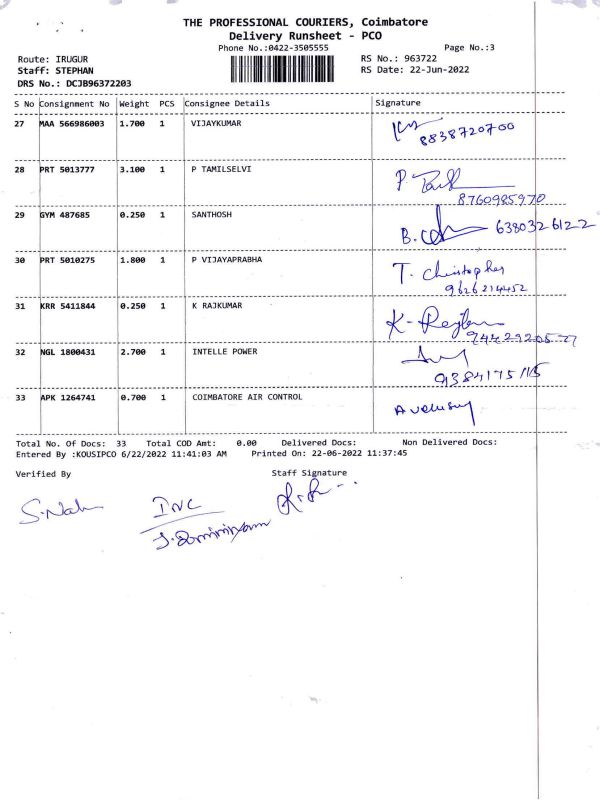 THE PROFESSIONAL COURIERS, Coimbatore
Delivery Runsheet - PCO
Phone No.:0422-3505555 Page No.:3
Route: IRUGUR RS No.: 963722
Staff: STEPHAN RS Date: 22-Jun-2022
DRS No.: DCJB96372203
S No Consignment No Weight PCS Consignee Details Signature
27 MAA 566986003 1.700 1 VIJAYKUMAR
8838720700
28 PRT 5013777 3.100 1 P TAMILSELVI
P
8760985970
29 GYM 487685 0.250 1 SANTHOSH
B. 6380326122
30 PRT 5010275 1.800 1 P VIJAYAPRABHA
T. Christopher
9626214452
31 KRR 5411844 0.250 1 K RAJKUMAR
K-
32 NGL 1800431 2.700 1 INTELLE POWER
33 APK 1264741 0.700 1 COIMBATORE AIR CONTROL
Total No. Of Docs: 33 Total COD Amt: 0.00 Delivered Docs: Non Delivered Docs:
Entered By :KOUSIPCO 6/22/2022 11:41:03 AM Printed On: 22-06-2022 11:37:45
Verified By Staff Signature